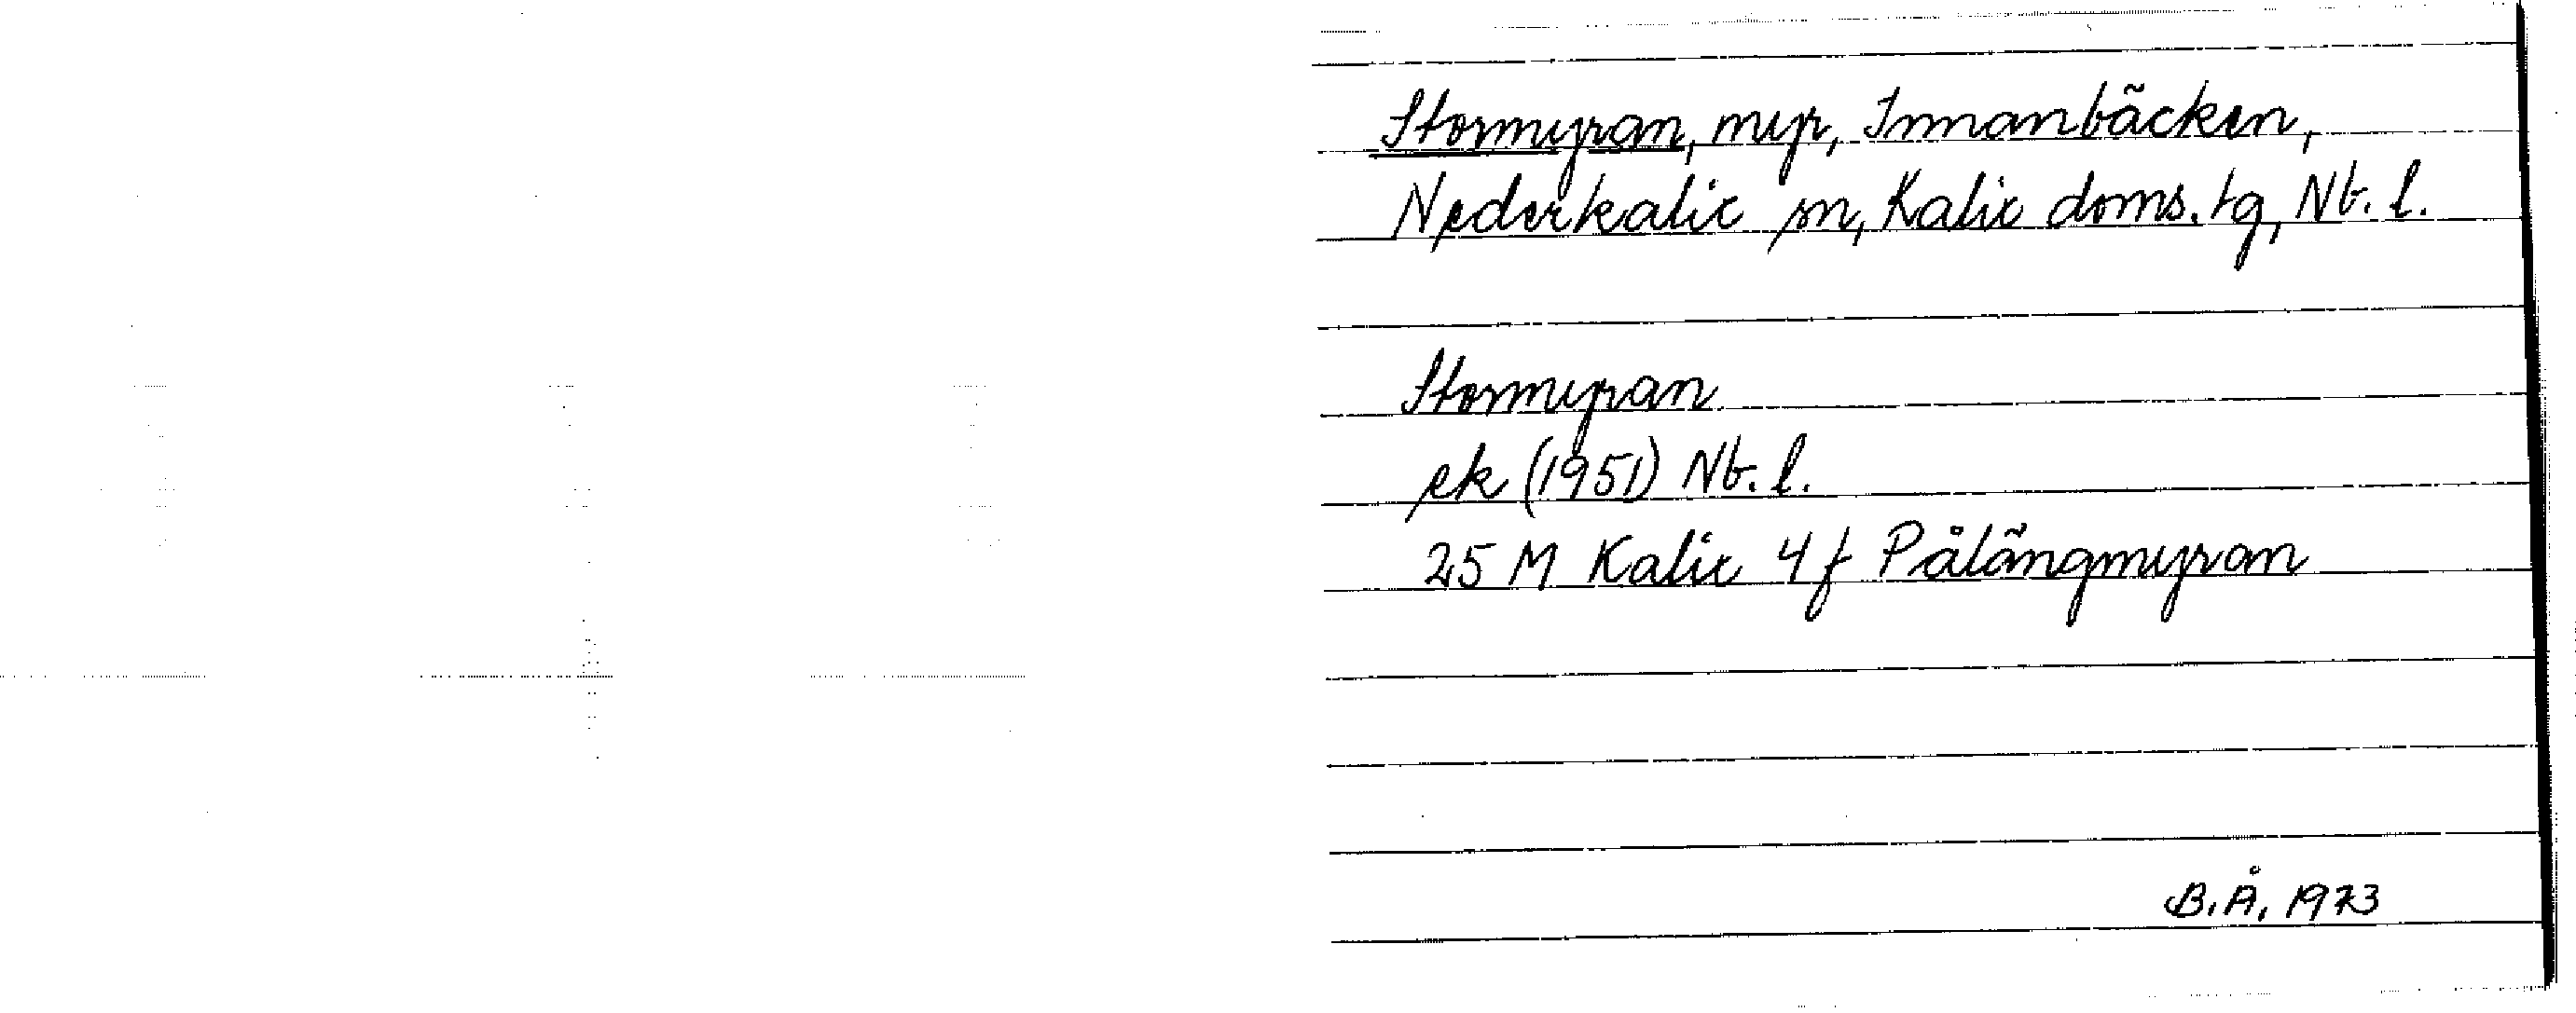 Stormyran, myr, Innanbäcken,
Nederkalix sn, Kalix doms. tg, Nb. l.
Stormyran
ek (1951) Nb. l.
25 M Kalix 4f Pålängmyran
B.Å. 1973